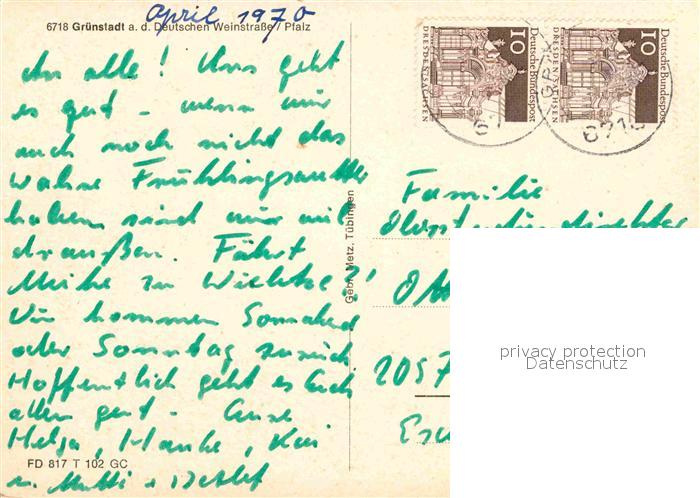 april 1970
6718 Grünstadt a. d. Deutschen Weinstraße / Pfalz
An alle! Uns geht
es gut - wenn wir
auch noch nicht das
wahre Frühlingswetter
haben sind wir viel
draußen. Fährt
zu
Wir kommen Sonnabend
oder Sonntag zurück
Hoffentlich geht es Euch
allen gut - Eure
Helga, Hauke, Kai
u. Mutti + Detlef
FD 817 T 102 GC
Gebr. Metz, Tübingen
10
Deutsche Bundespost
DRESDEN/SACHSEN
10
Deutsche Bundespost
DRESDEN/SACHSEN
6718
Familie
Oberstudiendirektor
2057
privacy protection
Datenschutz